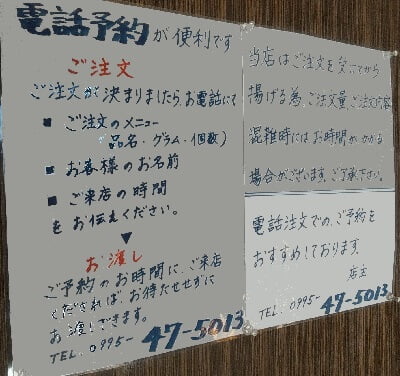 電話予約が便利です
ご注文
ご注文が決まりましたら、お電話にて
■ ご注文のメニュー
(品名・グラム・個数)
■ お客様のお名前
■ ご来店の時間
をお伝えください。
▼
お渡し
ご予約のお時間に、ご来店
くだされば、お待たせせずに
お渡しできます。
TEL: 0995-47-5013
当店はご注文を受けてから
揚げる為、ご注文量、ご注文内容
混雑時にはお時間がかかる
場合がございます。ご了承下さい。
電話注文での、ご予約を
おすすめしております。
店主
TEL: 0995-47-5013